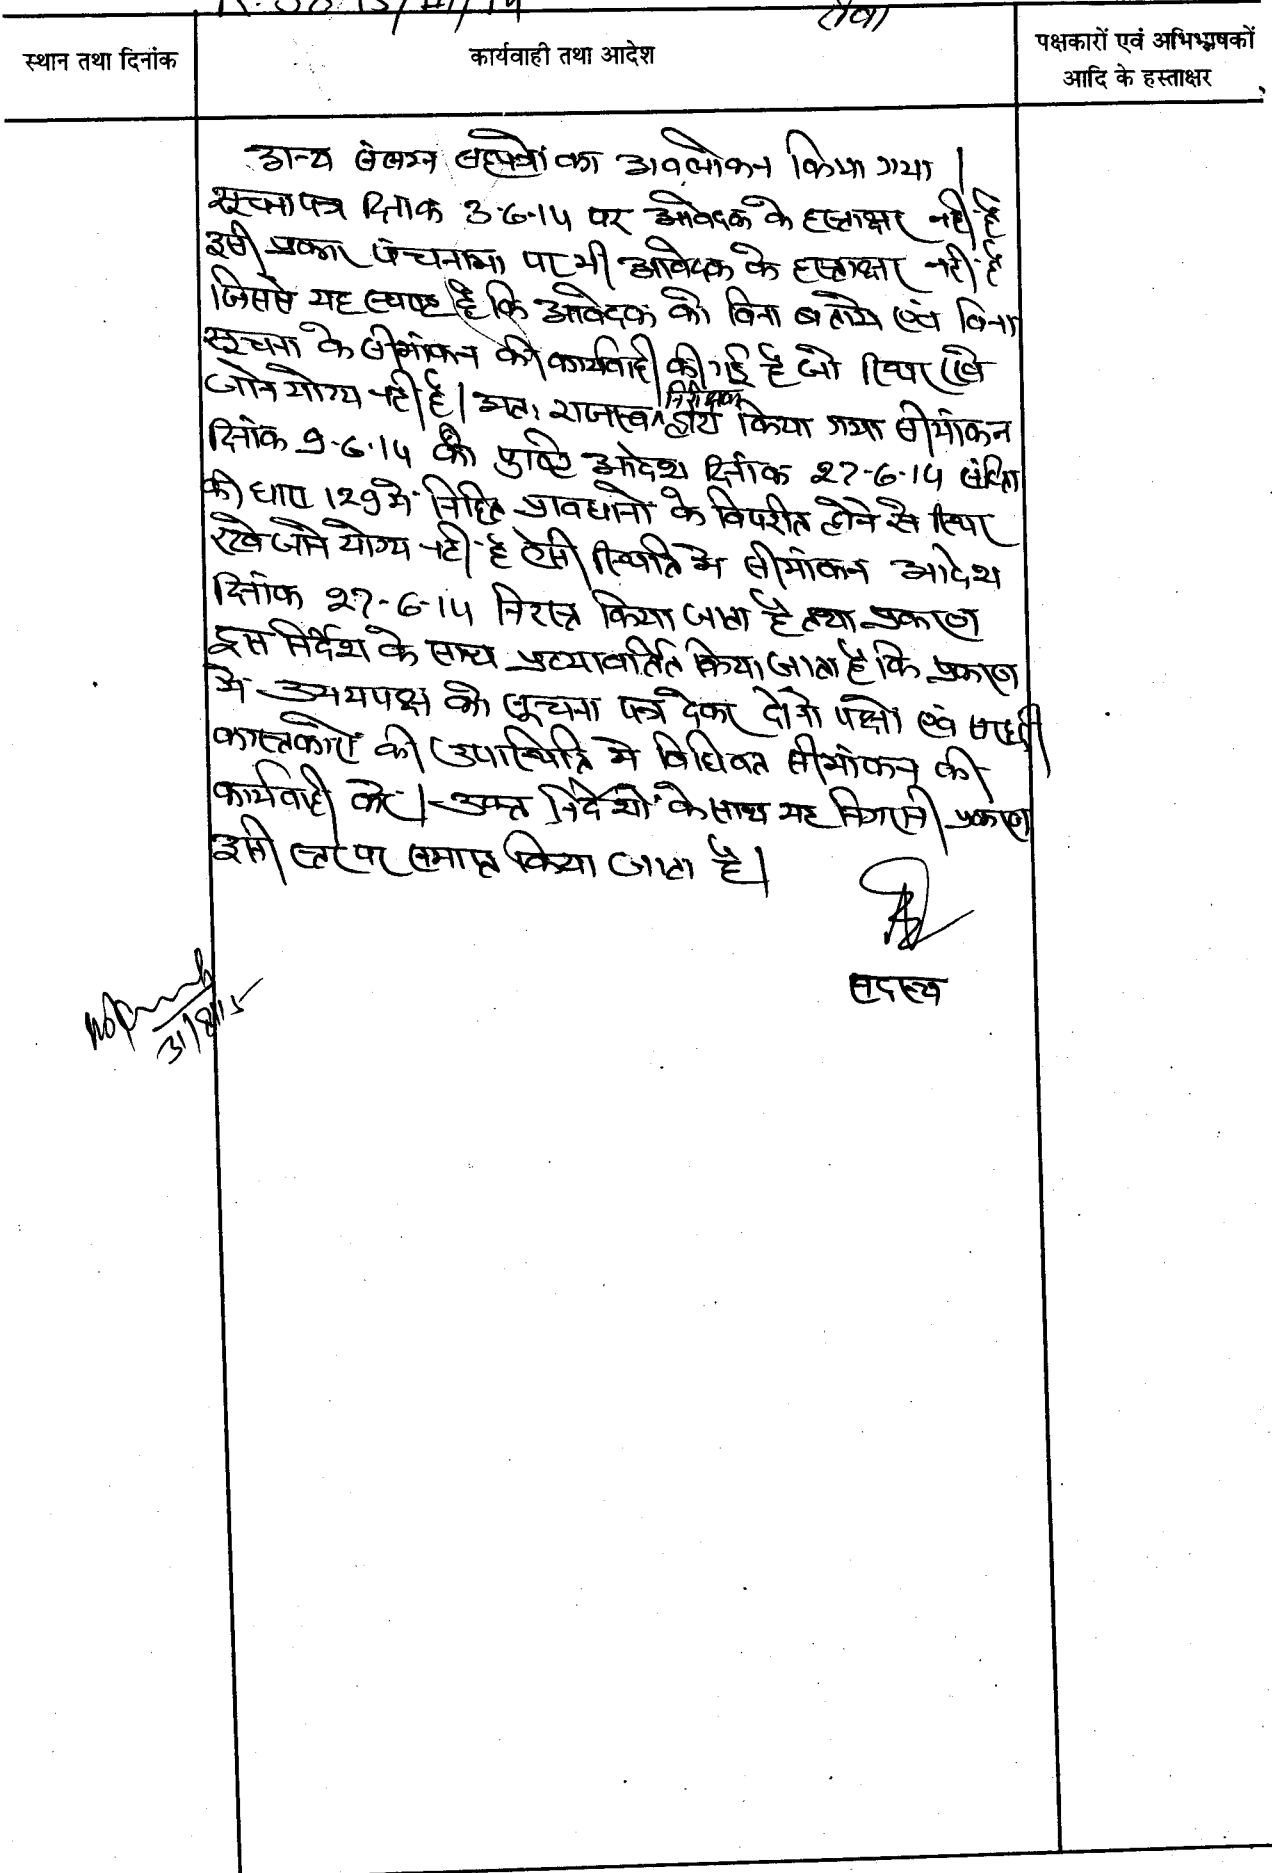 रीवा
स्थान तथा दिनांक
कार्यवाही तथा आदेश
पक्षकारों एवं अभिभाषकों
आदि के हस्ताक्षर
अन्य संलग्न सहपत्रों का अवलोकन किया गया।
सूचना पत्र दिनांक 3-6-14 पर आवेदक के हस्ताक्षर नहीं है
इसी प्रकार पंचनामा पर भी आवेदक के हस्ताक्षर नहीं है
जिससे यह स्पष्ट है कि आवेदक को बिना बताये एवं बिना
सूचना के सीमांकन की कार्यवाही की गई है जो स्थिर रखे
जाने योग्य नहीं है। अतः राजस्व निरीक्षक द्वारा किया गया सीमांकन
दिनांक 9-6-14 की पुष्टि आदेश दिनांक 27-6-14 संहिता
की धारा 129 में निहित प्रावधानों के विपरीत होने से स्थिर
रखे जाने योग्य नहीं है ऐसी स्थिति में सीमांकन आदेश
दिनांक 27-6-14 निरस्त किया जाता है तथा प्रकरण
इस निर्देश के साथ प्रत्यावर्तित किया जाता है कि प्रकरण
में उभयपक्ष को सूचना पत्र देकर दोनों पक्षों एवं सरहदी
कास्तकारों की उपस्थिति में विधिवत सीमांकन की
कार्यवाही करें। उक्त निर्देशों के साथ यह निगरानी प्रकरण
इसी स्तर पर समाप्त किया जाता है।
सदस्य
31/8/15